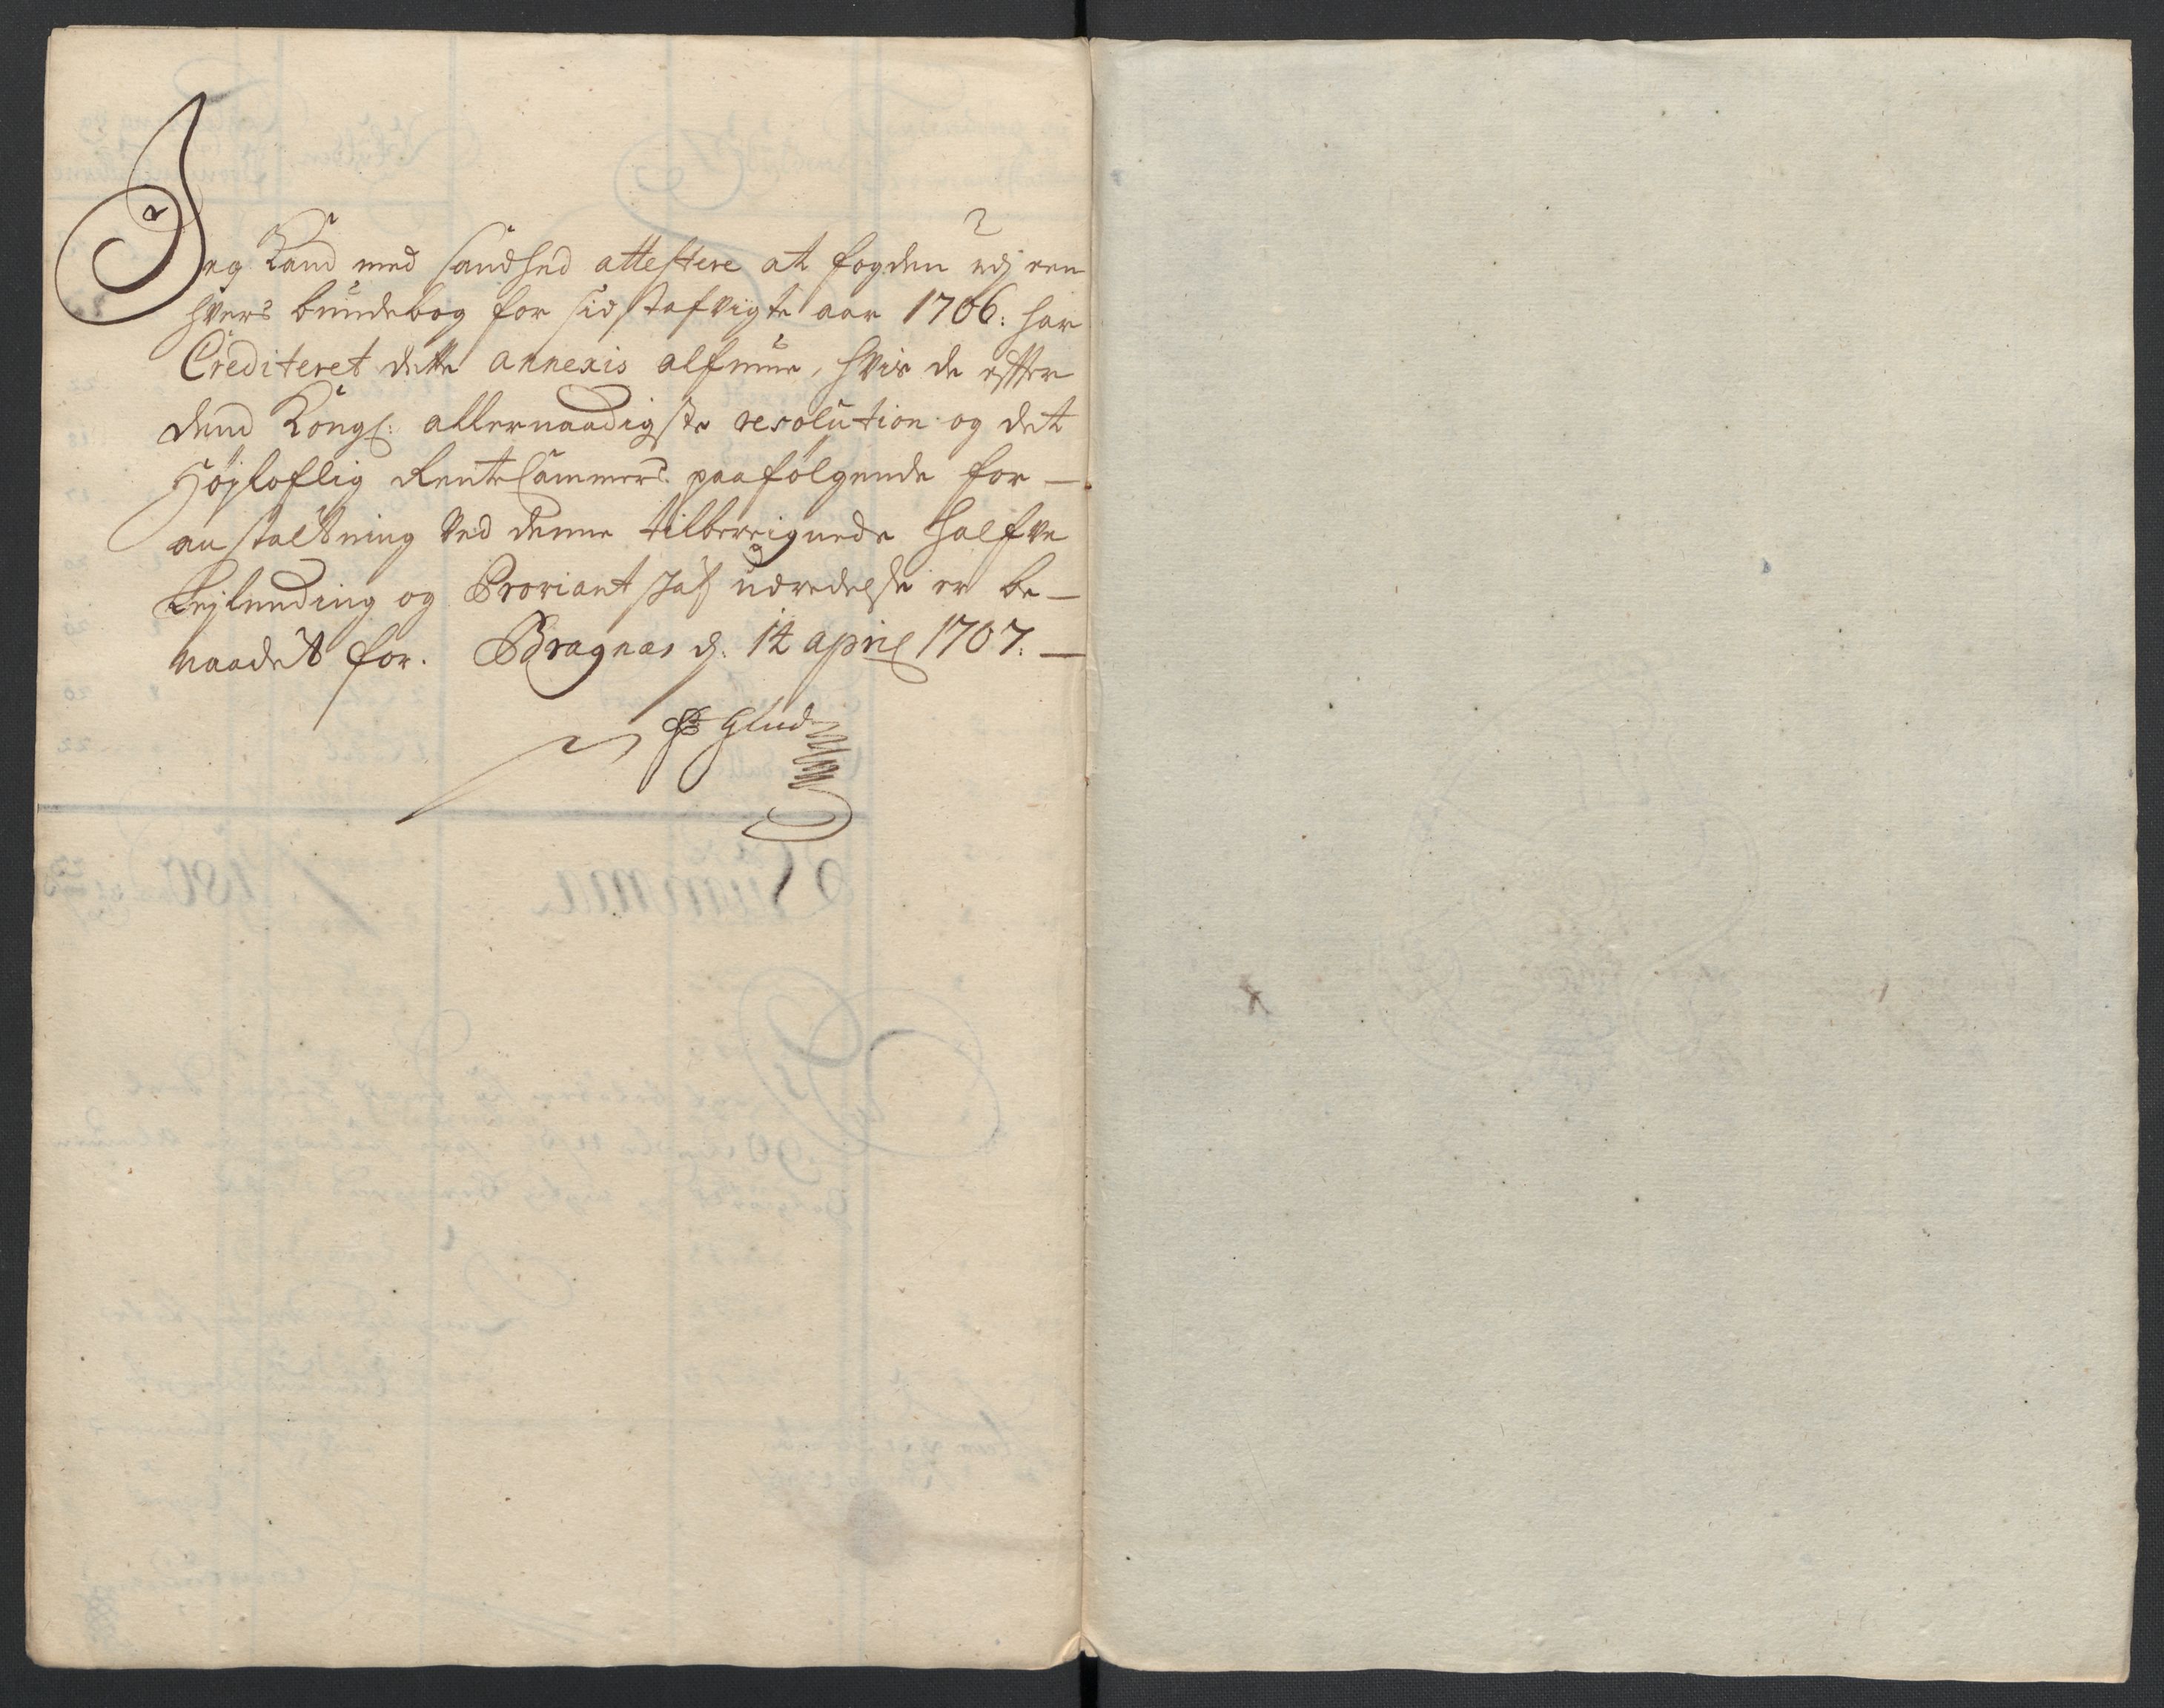 Jeg Kand med sandhed attestere at fogden udj een
hvers bundebog for sidstafvigte aar 1706: har
Crediteret dette annexis alfmue, hvis de efter
dend Kongl: allernaadigste resolution og det
Højloflig Rente Cammers paafølgende for —
anstaltning Ved denne tilbereignede halfve
Lejlending og Proviant skat udredelse er be —
naadet for. Bragnæs d. 14 april 1707. —
Glud